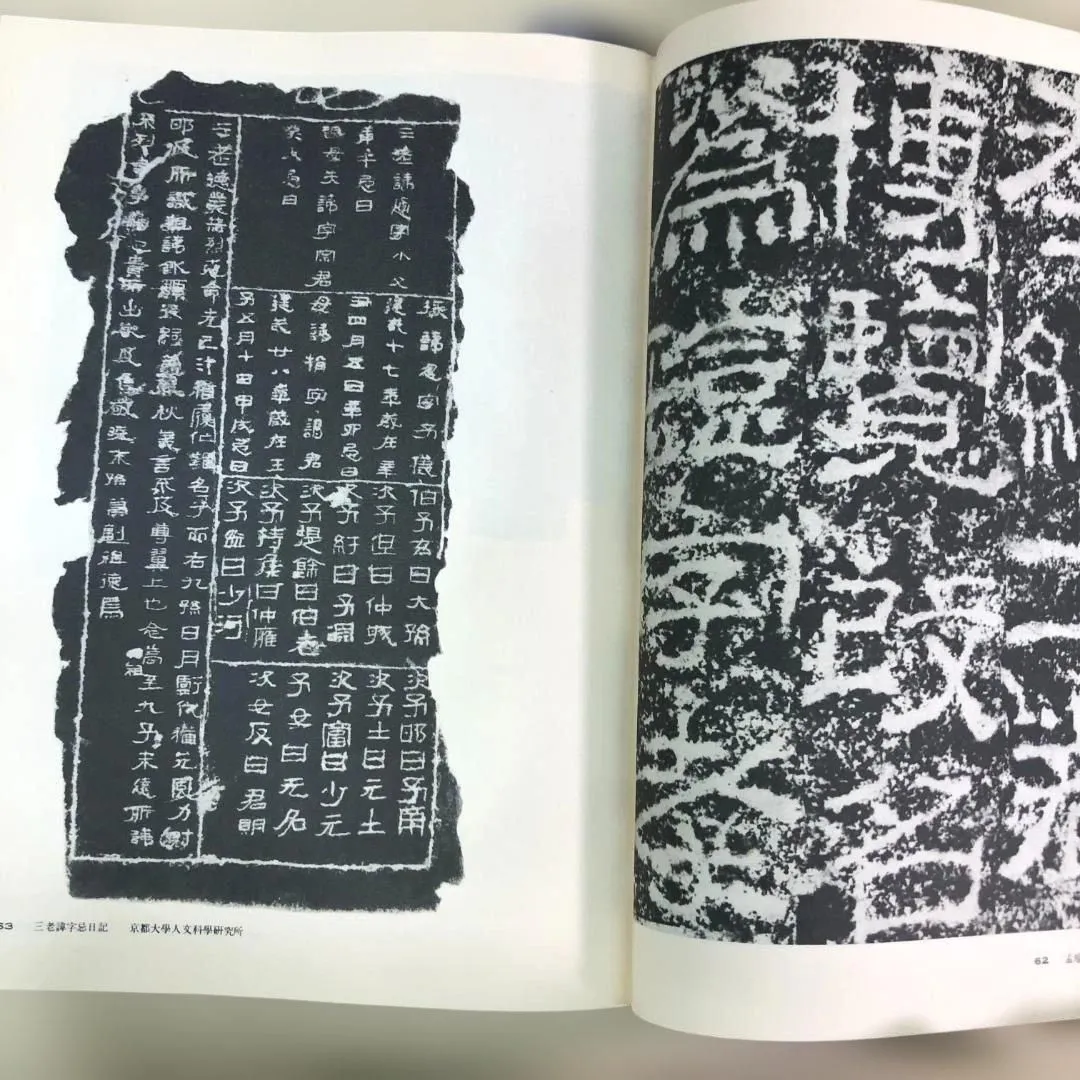 孝經二卷
博覽改名
為琁字孝
62 孟
三老諱通字小父
庚午忌日
祖母失諱字宗君
癸未忌日
掾諱忽字子儀
建武十七年歲在辛
丑四月五日辛卯忌日
母諱捐字謁君
建武廿八年歲在壬
子五月十日甲戌忌日
伯子玄曰大孫
次子但曰仲城
次子紆曰子淵
次子提餘曰伯老
次子持侯曰仲廱
次子盆曰少河
次子邯曰子南
次子士曰元士
次子富曰少元
子女曰无名
次女反曰君明
三老德業赫烈克命先己汁稽履仁難名兮而右九孫日月虧代猶元風力射
邯及所識祖諱欽顯後嗣蓋春秋義言不及尊翼上也念高祖至九子未遠所諱
不列言事觸忌貴所出嚴及焦敬曉末孫冀副祖德焉
63 三老諱字忌日記 京都大學人文科學研究所